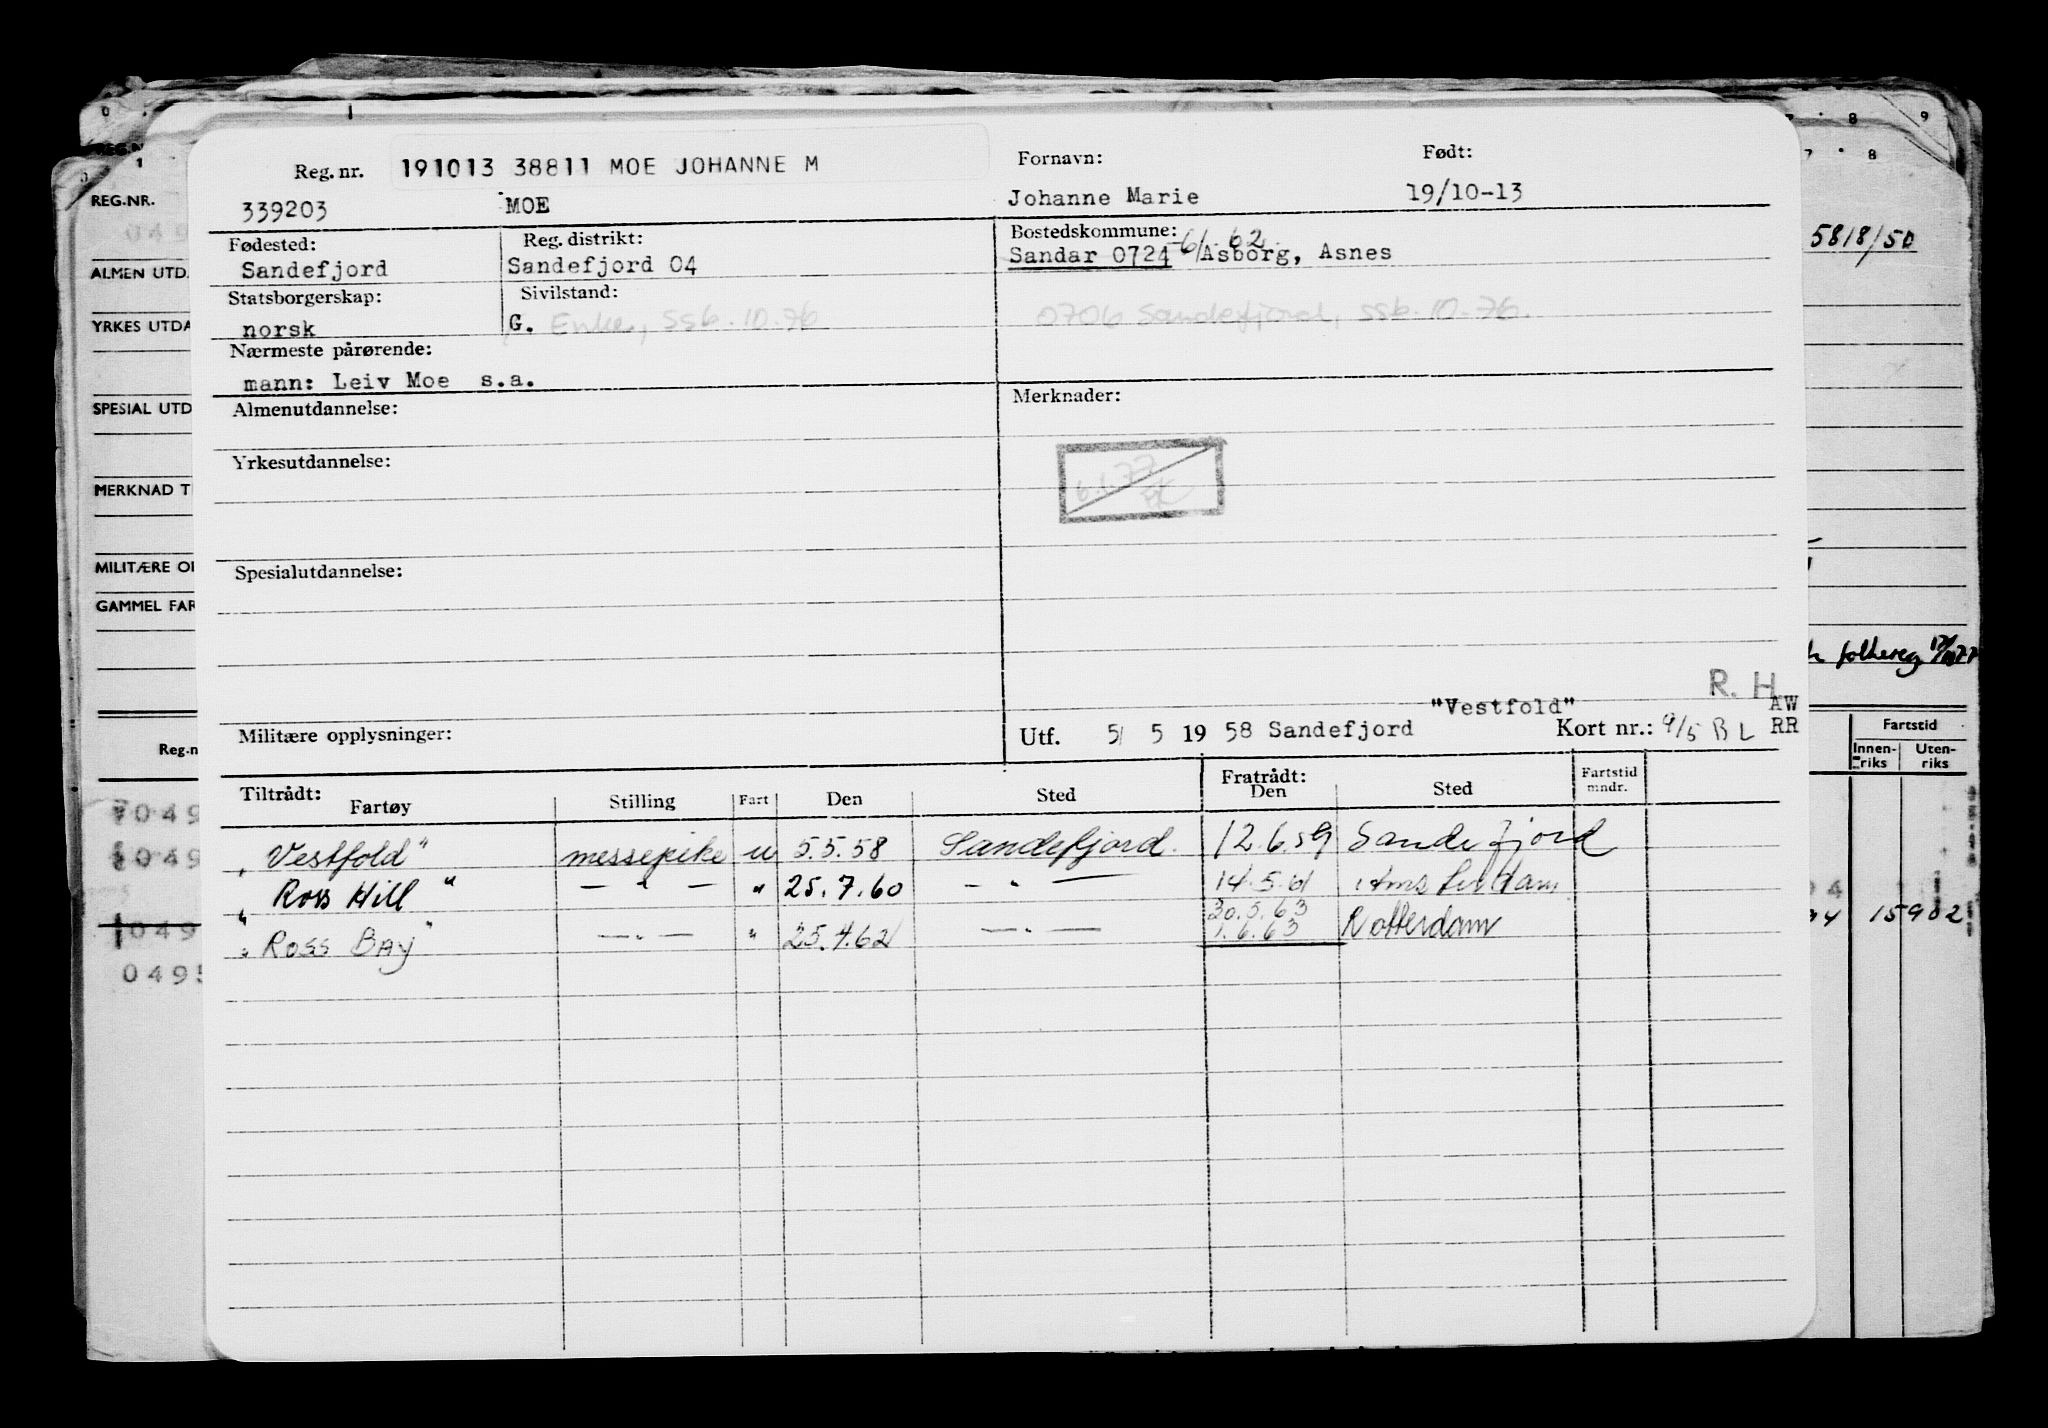 Reg. nr. 191013 38811 MOE JOHANNE M Fornavn: Født:
339203 MOE Johanne Marie 19/10-13
Fødested: Reg. distrikt: Bostedskommune: -61-62.
Sandefjord Sandefjord 04 Sandar 0724 Asborg, Asnes
Statsborgerskap: Sivilstand:
norsk G. Enke, ssb. 10.76 0706 Sandefjord, ssb. 10.76.
Nærmeste pårørende:
mann: Leiv Moe s.a.
Almenutdannelse: Merknader:
Yrkesutdannelse:
6.1.77
Spesialutdannelse:
R. H.
"Vestfold" AW
Militære opplysninger: Utf. 5/ 5 19 58 Sandefjord Kort nr.: 9/5 BL RR
Tiltrådt: Fratrådt: Fartstid
Fartøy Stilling Fart Den Sted Den Sted mndr.
"Vestfold" messepike u 5.5.58 Sandefjord. 12.6.59 Sandefjord
"Ross Hill" — " — " 25.7.60 — " — 14.5.61 Amsterdam
30.5.63
"Ross Bay" — " — " 25.4.62 — " — 1.6.63 Rotterdam
REG.NR.
049
ALMEN UTD.
YRKES UTDA
SPESIAL UTD
MERKNAD T
MILITÆRE O
GAMMEL FAR
Reg.n
049
049
049
0495
8 9
7 8
5818/50
folkereg
Fartstid
Innen-riks Uten-riks
15902